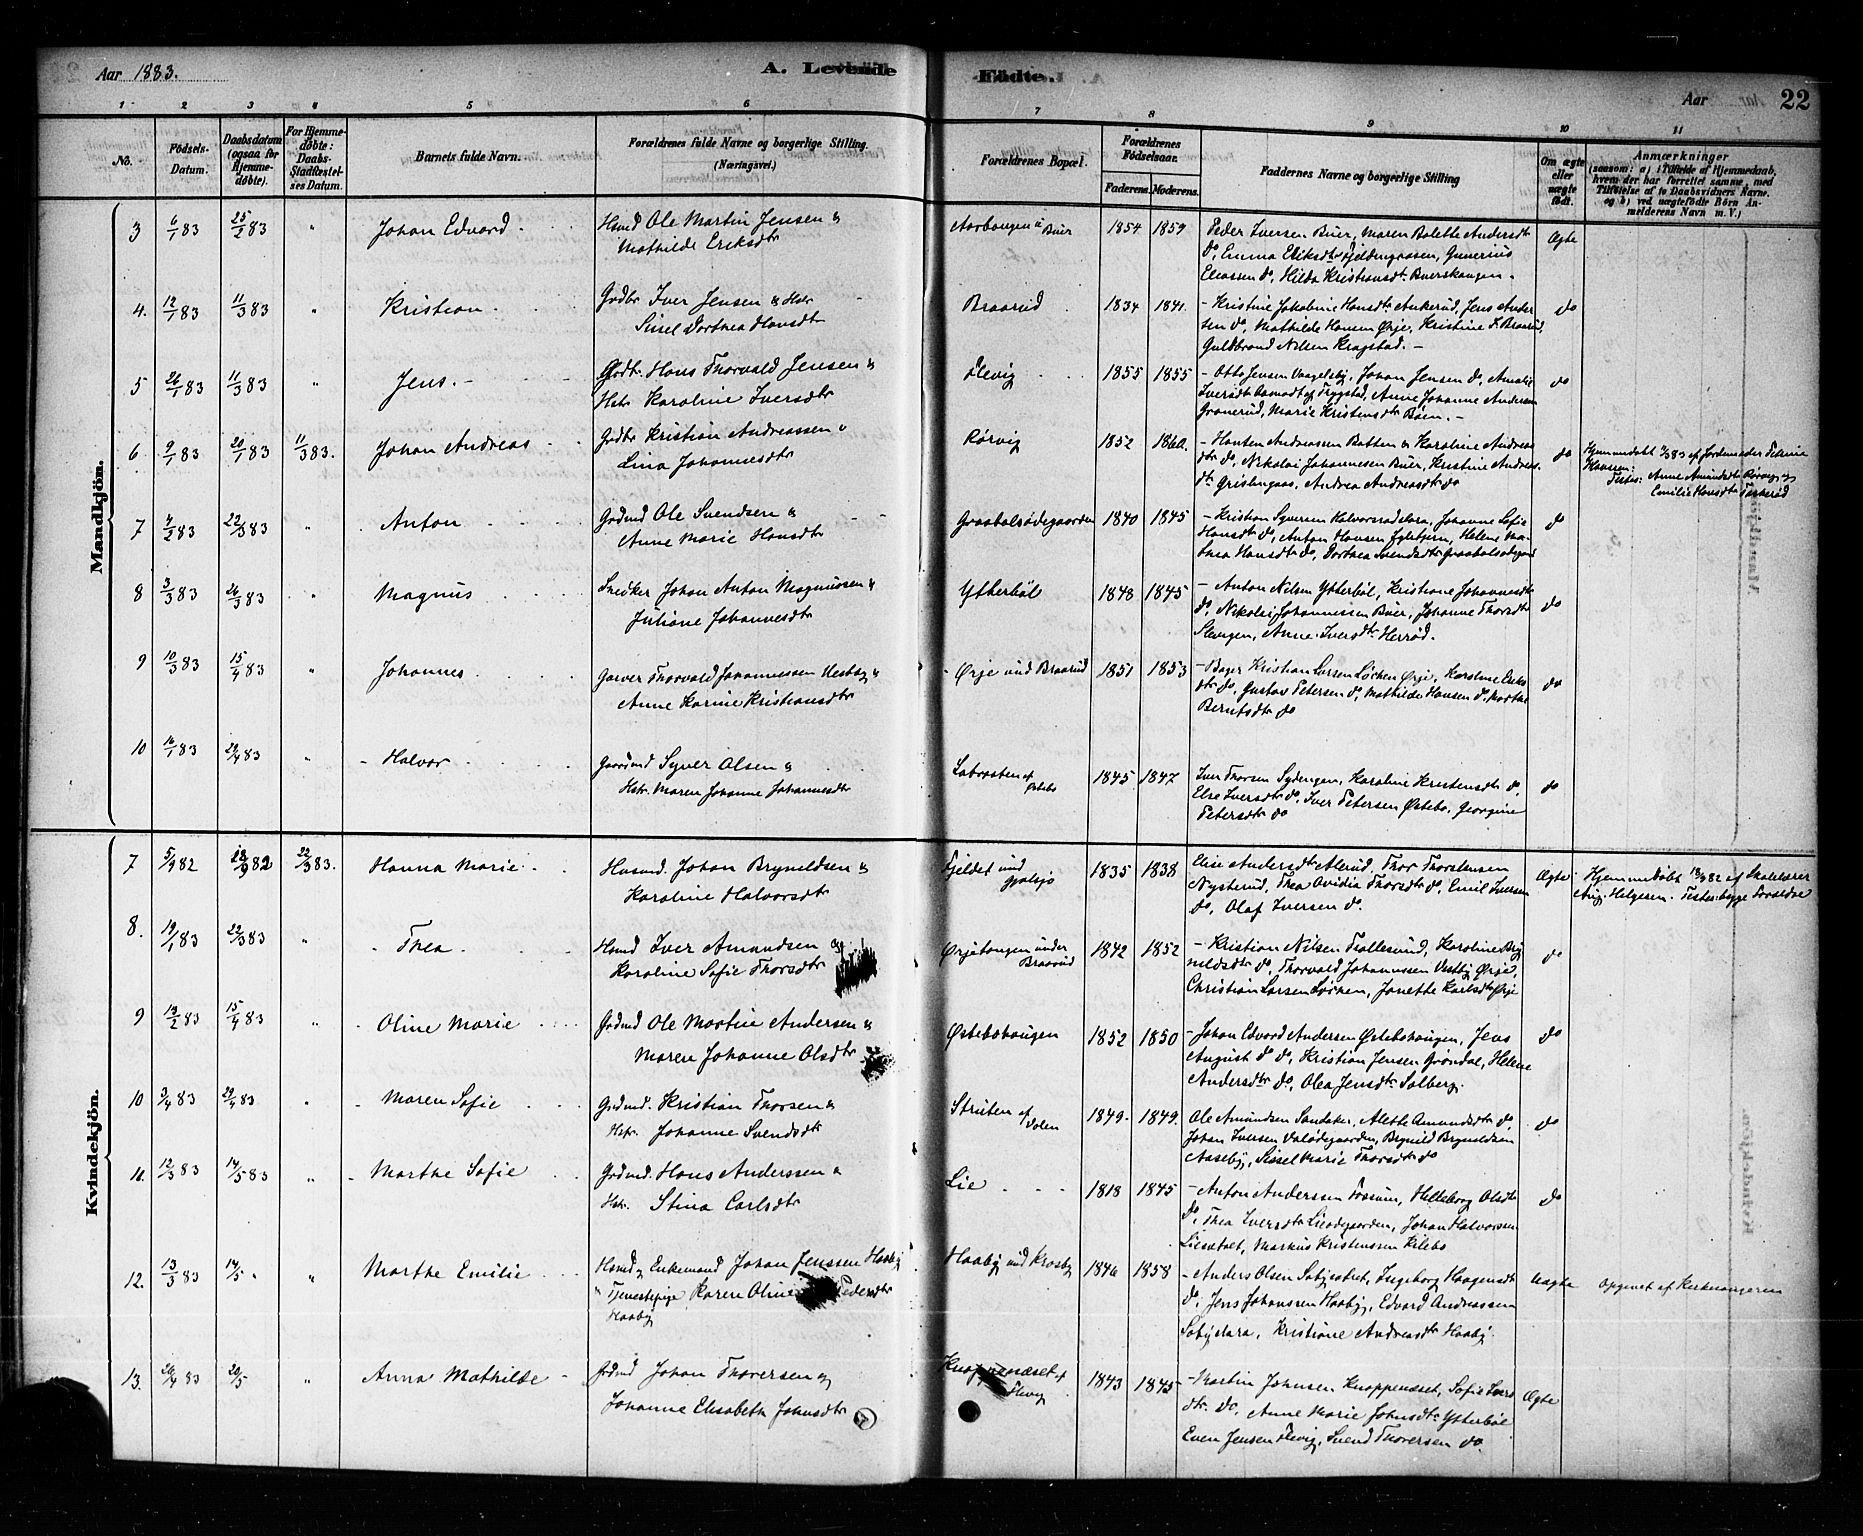 Aar 1883.
A. Levende
Födte.
Aar
22
1 2 3 4 5 6 7 8 9 10 11
No.
Födsels-
Datum.
Daabsdatum
(ogsaa for
Hjemme-
döbte).
For Hjemme-
døbte:
Daabs-
Stadfæstel-
ses Datum.
Barnets fulde Navn.
Forældrenes fulde Navne og borgerlige Stilling.
(Næringsvei.)
Forældrenes Bopæl.
Forældrenes
Födselsaar.
Faderens. Moderens.
Faddernes Navne og borgerlige Stilling
Om ægte
eller
uægte
født.
Anmærkninger
(saasom: a) i Tilfælde af Hjemmedaab,
hvem der har forrettet samme, med
Tilføielse af to Daabsvidners Navne,
og b) ved uægtefødte Börn An-
melderens Navn m. V.)
Mandkjön.
3 6/1 83 25/2 83 " Johan Edvard Husmd Ole Martin Jensen &
Mathilde Eriksdtr
Buer 1854 1859 Peder Iversen Buer, Maren Bolette Andersdtr
do, Emma Eriksdtr Gunerius
Eliassen do, Hilda Kristiansdtr Buerskaugen.
Ægte
4. 12/1 83 11/3 83 " Kristian Grdbr Iver Jensen & Hstr
Sissel Dorthea Hansdtr
Braarud 1834 1841. Kristine Jakobine Hansdtr Ankerud, Jens Ander-
sen do, Mathilde Hansen Ørje, Kristine I. Braarud,
Guldbrand Nilsen Kragstad. -
do
5 26/1 83 11/3 83 " Jens. Grdbr. Hans Thorvald Jensen &
Hstr Karoline Iversdtr
Flevig 1855 1855 Otto Jensen Vaagelsby, Johan Jensen do, Amalie
Iversdtr af Trygstad, Anne Johanne Andersen
Granerud, Marie Kristensdtr Böen. -
do
6 9/1 83 20/1 83 11/3 83. Johan Andreas Grdbr Kristian Andreassen &
Lina Johannesdtr
Rörvig 1852 1860. Andreassen Batten & Karoline Andreas-
dtr do, Nikolai Johannesen Buer, Kristine Andreas-
dtr Grislingaas, Andrea Andreasdtr do
do
Hjemmedöbt af Jordemoder
Hansen:
Testes: Anne Amundsdtr Rörvig og
Emilie Hansdtr
7 4/2 83 22/3 83 " Anton Grdmd Ole Svendsen &
Anne Marie Hansdtr
Graabølsödegaarden 1840 1845 Kristian Syversen Halvorsrud, Johanne Sofie
Hansdtr do, Anton Hansen, Helene Ma-
thea Hansdtr do, Dorthea Svendsdtr Graabølsödegrd
do
8 3/3 83 26/3 83 " Magnus Snedker Johan Anton Magnussen &
Juliane Johannesdtr
Ytterböl 1848 1845 Anton Nilsen Ytterböl, Kristiane Johannesdtr
do, Nikolai Johannessen Buer, Johanne Thorsdtr
Slangen, Anne Iversdtr Herröd.
do
9 10/3 83 15/4 83 " Johannes Garver Thorvald Johannessen Vestby &
Anne Karine Kristiansdtr
Ørje und Braarud 1851 1853 Bager Kristian Larsen Löchen Ørje, Karoline Eriks-
dtr do, Gustav Petersen do, Mathilde Hansen do, Marthe
Berntsdtr do
do
10 16/1 83 29/4 83 " Halvor Gaardmd Syver Olsen &
Hstr. Maren Johanne Johannesdtr
af
Østebø 1845 1847 Iver Thorsen Sydengen, Karoline Kristensdtr do,
Else Iversdtr do, Iver Petersen Østebø, Georgine
Petersdtr do
do
Kvindekjön.
7 5/9 82 18/9 82 22/3 83. Hanna Marie Husmd. Johan Bryneldsen &
Karoline Halvorsdtr
Fjeldet und 1835 1838 Else Andersdtr Alerud, Thor Thorstensen
Nysterud, Thea Ovidia Thorsdtr do, Emil Iversen
do, Olaf Iversen do.
Ægte Hjemmedöbt 18/9 82 af Skolelærer
Aug. Helgesen. Testes: begge Forældre
8. 19/1 83 22/3 83 " Thea Husmd Iver Amundsen &
Karoline Sofie Thorsdtr
Ørjetangen under
Braarud 1842 1852 Kristian Nilsen Tollefsrud, Karoline Bry-
nildsdtr do, Thorvald Johannessen Vestby Ørje,
Christian Larsen Löchen, Janette Karlsdtr Ørje
do
9 19/2 83 15/4 83 " Oline Marie Grdmd Ole Martin Andersen &
Maren Johanne Olsdtr
Østebøhaugen 1852 1850 Johan Edvard Andersen Østebøhaugen, Jens
August do do, Kristian Jensen Gröndal, Helene
Andersdtr do, Olea Jensdtr Solberg.
do
10 3/4 83 29/4 83 " Maren Sofie Grdmd. Kristian Thorsen &
Hstr. Johanne Svendsdtr
Struten af
Volen 1849. 1849. Ole Amundsen Sandaker, Alette Amundsdtr do
Johan Iversen Valödegaarden, Brynild Bryneldsen
Aaseby, Sissel Marie Thorsdtr do
do
11. 12/3 83 14/5 83 " Marthe Sofie Grdmd. Hans Anderssen &
Hstr. Stina Carlsdtr
Lie 1818 1845 Anton Anderssen Fossum, Helleborg Olsdtr
do, Thea Iversdtr Lieödegaarden, Johan Halvorsen
Liesætret, Markus Kristenssen Kilebo
do
12. 13/3 83 14/5 " " Marthe Emilie Husmd og Enkemand Johan Jenssen Haaby
& Tjenestepige Karen Oline Pedersdtr
Haaby
Haaby und Krosby 1846 1858 Anders Olsen Sobysætret, Ingeborg Haagensdtr
do, Jens Johanssen Haaby, Edvard Andreassen
Sobyelara, Kristiane Andreasdtr Haaby.
Uægte Opgivet af Kirkesangeren
13. 26/4 83 20/5 " Anna Mathilde Grdmd Johan Thoversen &
Johanne Elisabeth Johnsdtr
Knappenæset af
Flevig 1843 1845 Martin Johnsen Knappenæset, Sofie Lars-
dtr. do, Anne Marie Johnsdtr Ytterböl
Even Jensen Flevig, Svend Thoversen do
Ægte